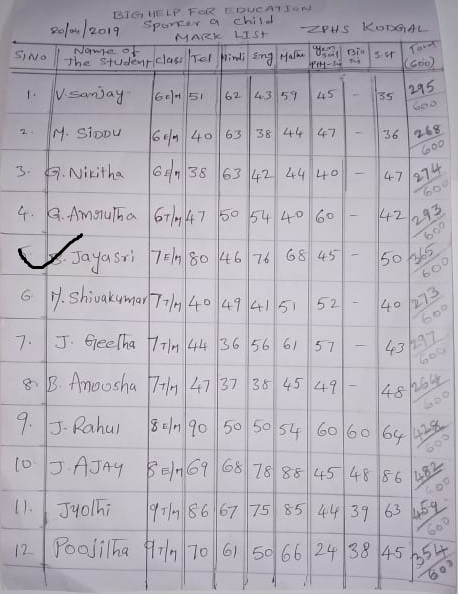 BIG HELP FOR EDUCATION
20/04/2019 Sponcer a child ZPHS KODGAL
MARK LIST
S.NO Name of The Student class Tel Hindi Eng Maths Bio Sci S.st Total (600)
1. V. Sanjay 6 E/M 51 62 43 59 45 - 35 295/600
2. M. SIDDU 6 E/M 40 63 38 44 47 - 36 268/600
3. G. Nikitha 6 E/M 38 63 42 44 40 - 47 274/600
4. G. Amrutha 6 T/M 47 50 54 40 60 - 42 293/600
Jayasri 7 E/M 80 46 76 68 45 - 50 365/600
6 M. Shivakumar 7 T/M 40 49 41 51 52 - 40 273/600
7. J. Geetha 7 T/M 44 36 56 61 57 - 43 297/600
8. B. Anousha 7 T/M 47 37 38 45 49 - 48 264/600
9. J. Rahul 8 E/M 90 50 50 54 60 60 64 428/600
10. J. AJAY 8 E/M 69 68 78 88 45 48 86 482/600
11. Jyothi 9 T/M 86 67 75 85 44 39 63 459/600
12 Poojitha 9 T/M 70 61 50 66 24 38 45 354/600